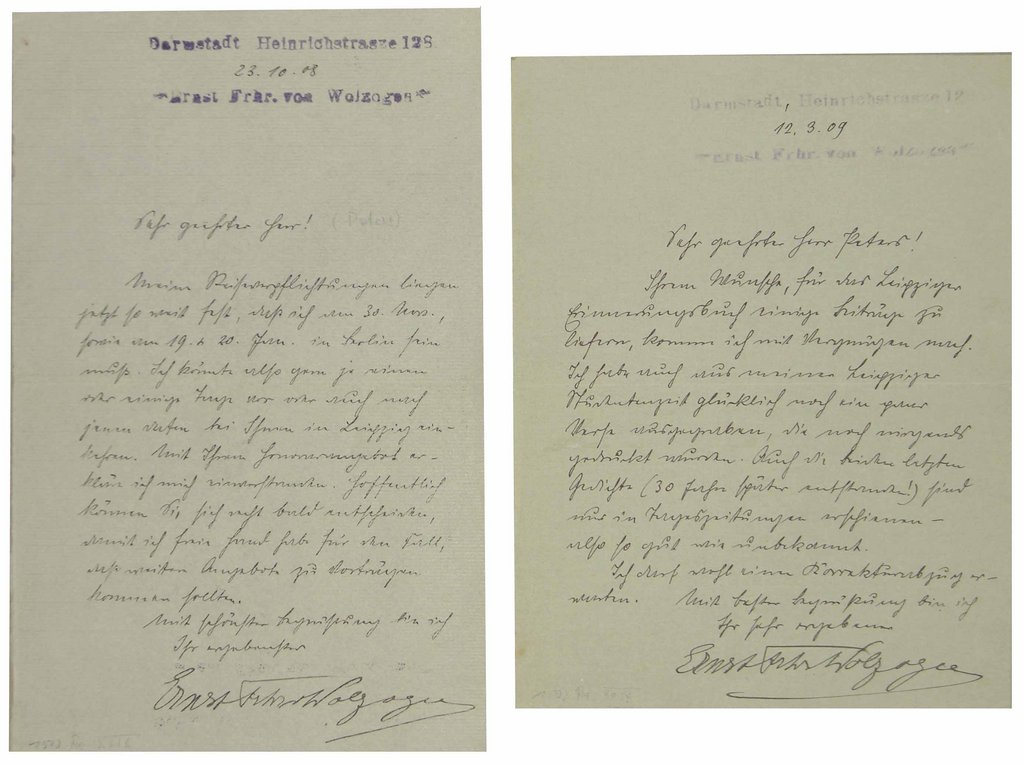 Darmstadt Heinrichstrasse 128
23.10.08
Ernst Frhr. von Wolzogen
Sehr geehrter Herr!
Meine Reiseverpflichtungen liegen
jetzt so weit fest, daß ich am 30. Nov.,
sowie am 19. & 20. Jan. in Berlin sein
muß. Ich könnte also gern je einen
oder einige Tage vor oder auch nach
jenen Daten bei Ihnen in Leipzig ein-
kehren. Mit Ihrem Honorarangebot er-
kläre ich mich einverstanden. Hoffentlich
können Sie sich recht bald entscheiden,
damit ich freie Hand habe für den Fall,
daß weitere Angebote zu Vorträgen
kommen sollten.
Mit schönster Begrüßung bin ich
Ihr ergebenster
Ernst Frhr v Wolzogen
Darmstadt, Heinrichstrasse 12
12.3.09
Ernst Frhr. von
Sehr geehrter Herr Peters!
Ihrem Wunsche, für das Leipziger
Erinnerungsbuch einige Beiträge zu
liefern, komme ich mit Vergnügen nach.
Ich habe auch aus meiner Leipziger
Studentenzeit glücklich noch ein paar
Verse ausgegraben, die noch nirgends
gedruckt wurden. Auch die beiden letzten
Gedichte (30 Jahre später entstanden!) sind
nur in Tageszeitungen erschienen –
also so gut wie unbekannt.
Ich darf wohl einen Korrekturabzug er-
warten. Mit bester Begrüßung bin ich
Ihr sehr ergebener
Ernst Frhr v Wolzogen